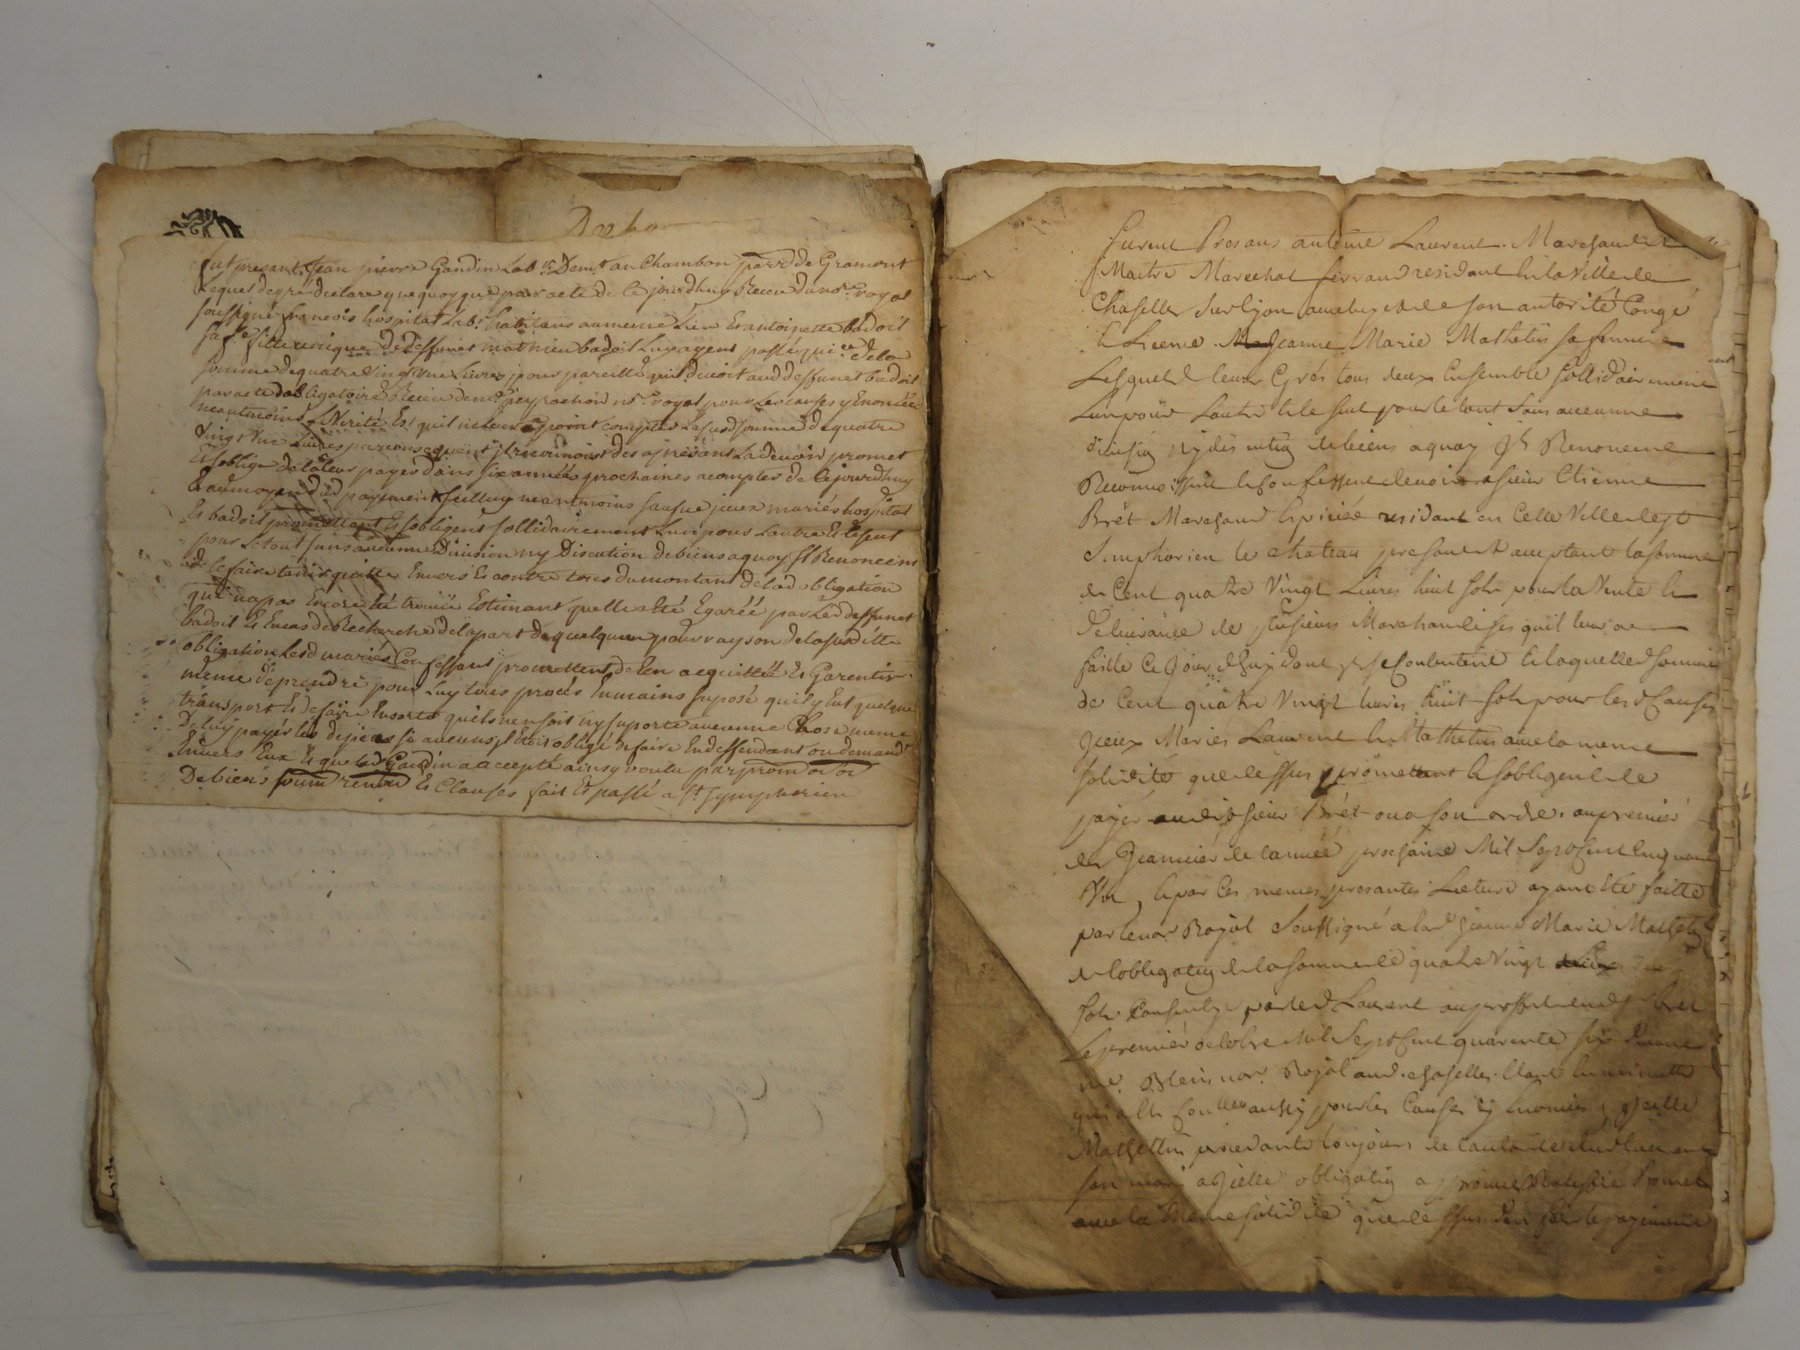 fut present Jean pierre Gandin Lab.r Demt au Chambon parr.e de Gramont
Lequel degré declare que quoyque par acte de Ce jourdhuy Receu du no.re royal
soussigné francois hospital Lab.r habitans aumeme Lieu Et antoinette badoil
sa fe fille unique De deffunct mathieu badoil Luy ayent passé quitce dela
somme dequatre vingt une Livres pour pareille quil devoit aud deffunct badoil
par acte dobligatoire Receu de me peyrachon nore royal pour Les causes y Enoncées
neantmoins La Verité Est quil ne leur a point compté La susd somme de quatre
Vingt Une Livres parconsequent jl se devenoit des apresant La devoir promet
Et soblige de la leur payer dans six années prochaines acompter de Cejourdhuy
Et aumoyen dud payement seullement neantmoins Lesquels jceux mariés hospital
Et badoil promettent Et sobligent sollidairement Lun pour Lautre Et Le seul
pour Le tout sans aucunne Division ny Discution debiens aquoy jls Renoncent
de le faire tenir quitte Envers Et contre tous du montant de lad obligation
qui na pas Encore été trouvée Estimant quelle a été Egarée par Led deffunct
badoil Et Encas de Recherche dela part de quelquun pour rayson de la susditte
obligation Lesd mariés Confessans promettent de len acquitter Et Garentir
meme de prendre pour Luy tous procés Enmains suposé quil y Eut quelque
transport Et de faire Ensorte quil nen soit ny suporte aucunne Chose meme
De luy payer les depens si aucuns jl Etoit obligé de faire En deffendant ou demandt
Envers Eux Ce que led Gandin a accepté ainsy voulu par prom obl
De biens soum renon Et Clauses fait Et passé a St Symphorien
furent Presans antoine Laurent Marchand Et
Maitre Marechal ferrand residant En la Ville de
Chaselles sur Lyon avec luy et de son autorité Congé
Et Licence Jeanne Marie Mathelin sa femme
Lesquels de leurs Grés tous deux Ensemble sollidairement
Lun pour Lautre Et le seul pour le tout sans aucunne
division ny discution de biens a quoy jls Renoncent
Reconnoissent Et Confessent devoir a sieur Etienne
Brét Marchand Epicier residant en Cette Ville de St
Simphorien le chateau present Et acceptant la somme
de Cent quatre Vingt Livres huit sols pour la Vente Et
delivrance de plusieurs Marchandises quil leur a
faitte Ce jour dhuy dont jls se Contentent Et laquelle d somme
de Cent quatre Vingt Livres huit sols pour les d Causes
Jceux Mariés Laurent Et Mathelin avec la meme
solidité que dessus promettent Et sobligent de
payer audit sieur Brét ou a son ordre au premier
de Janvier de lannée prochaine Mil Sept Cent Cinquante
Un, Et par Ces memes presantes Lecture ayant été faitte
par le nore Royal Soussigné a lad Jeanne Marie Mathelin
de lobligation de la somme de quatre Vingt
sols Consentie par led Laurent au proffit dud sr Brét
Le premier octobre Mil Sept Cent quarente six devant
me Blein nore Royal aud. Chaselles
qui a été aussy pour les Causes y Enoncées jcelle
Mathelin procedante toujours de lautorité dud Laurent
son mary a jcelle obligation approuvé Ratiffié Promet
avec la meme solidité que dessus den faire le payement